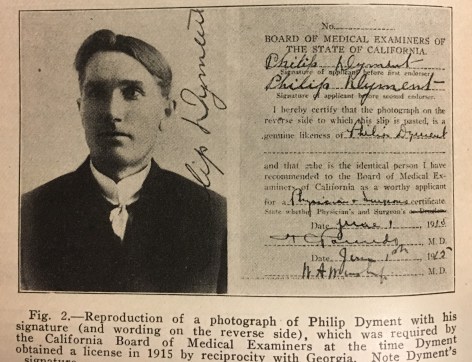 Philip Dyment
No.
BOARD OF MEDICAL EXAMINERS OF
THE STATE OF CALIFORNIA.
Philip Dyment
Signature of applicant before first endorser.
Philip Dyment
Signature of applicant before second endorser.
I hereby certify that the photograph on the
reverse side to which this slip is pasted, is a
genuine likeness of Philip Dyment
and that he is the identical person I have
recommended to the Board of Medical Ex-
aminers of California as a worthy applicant
for a Physician & Surgeons certificate.
State whether Physician's and Surgeon's or
Date June 1 1915
M.D.
Date June 1st 1915
M.D.
Fig. 2.—Reproduction of a photograph of Philip Dyment with his
signature (and wording on the reverse side), which was required by
the California Board of Medical Examiners at the time Dyment
obtained a license in 1915 by reciprocity with Georgia. Note Dyment's
signature